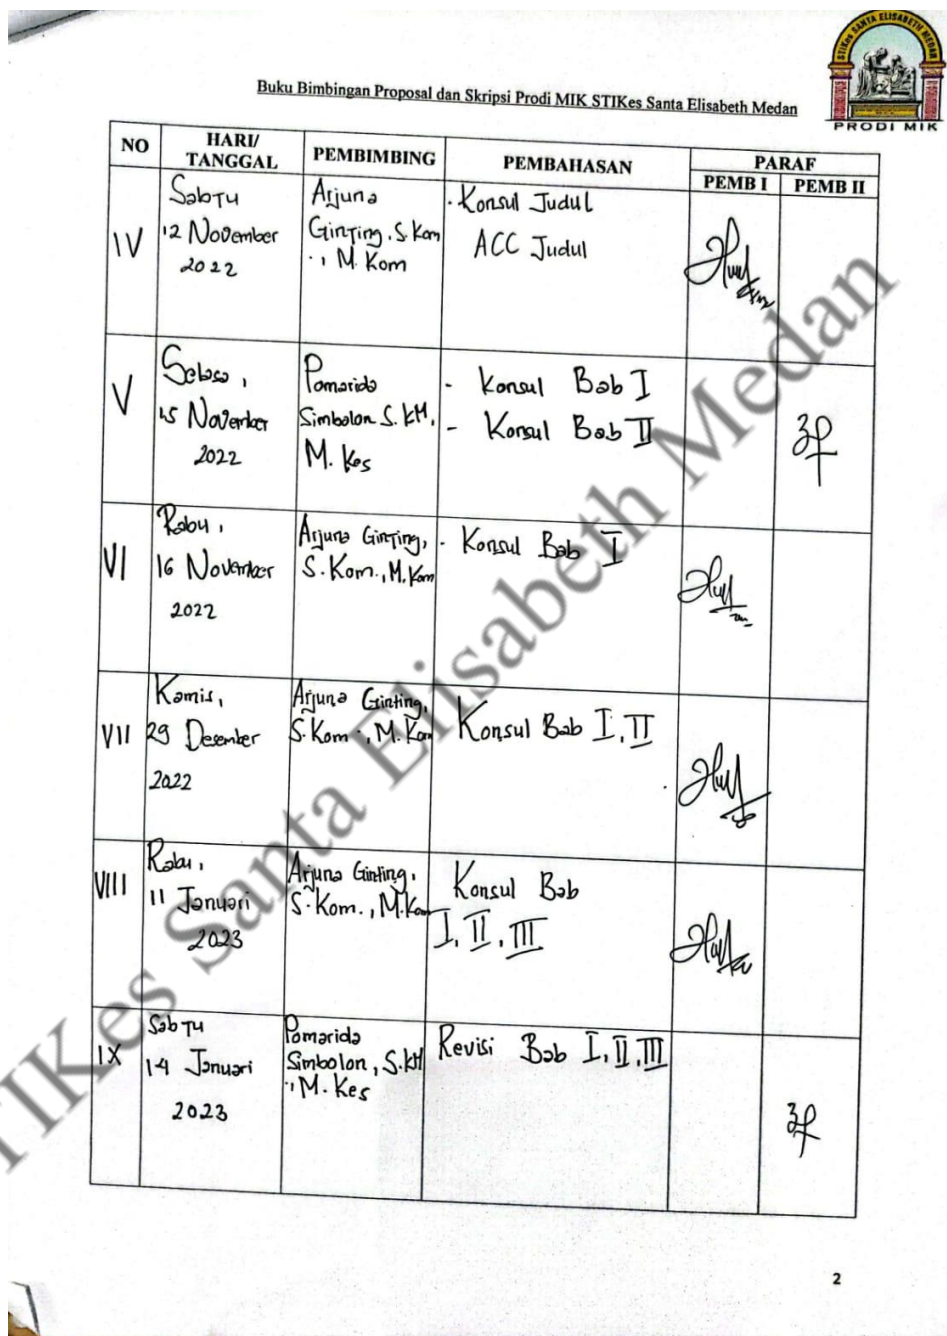 STIKes SANTA ELISABETH MEDAN
PRODI MIK
Buku Bimbingan Proposal dan Skripsi Prodi MIK STIKes Santa Elisabeth Medan
NO HARI/ TANGGAL PEMBIMBING PEMBAHASAN PARAF
PEMB I PEMB II
IV
Sabtu
12 November
2022
Arjuna
Ginting, S.Kom
., M. Kom
- Konsul Judul
ACC Judul
V
Selasa,
15 November
2022
Pomarida
Simbolon S. KM,
M. Kes
- Konsul Bab I
- Konsul Bab II
VI
Rabu,
16 November
2022
Arjuna Ginting,
S. Kom., M. Kom
- Konsul Bab I
VII
Kamis,
29 Desember
2022
Arjuna Ginting,
S. Kom., M. Kom
Konsul Bab I, II
VIII
Rabu,
11 Januari
2023
Arjuna Ginting,
S. Kom., M. Kom
Konsul Bab
I, II, III
IX
Sabtu
14 Januari
2023
Pomarida
Simbolon, S.KM
., M. Kes
Revisi Bab I, II, III
TIKes Santa Elisabeth Medan
2